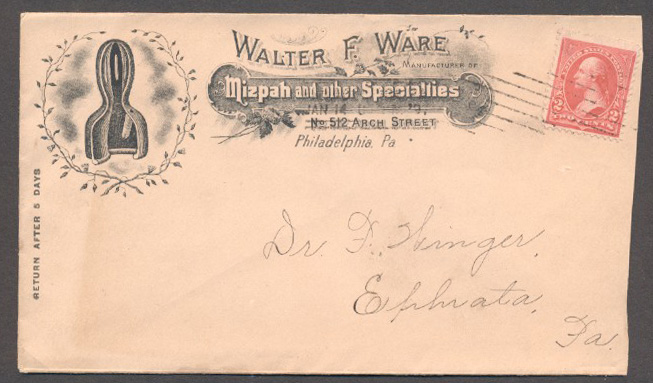 WALTER F. WARE
MANUFACTURER OF
Mizpah and other Specialties
JAN 14
No 512 ARCH STREET
Philadelphia, Pa
2 TWO CENTS 2
RETURN AFTER 5 DAYS
Dr. F. Winger,
Ephrata,
Pa.